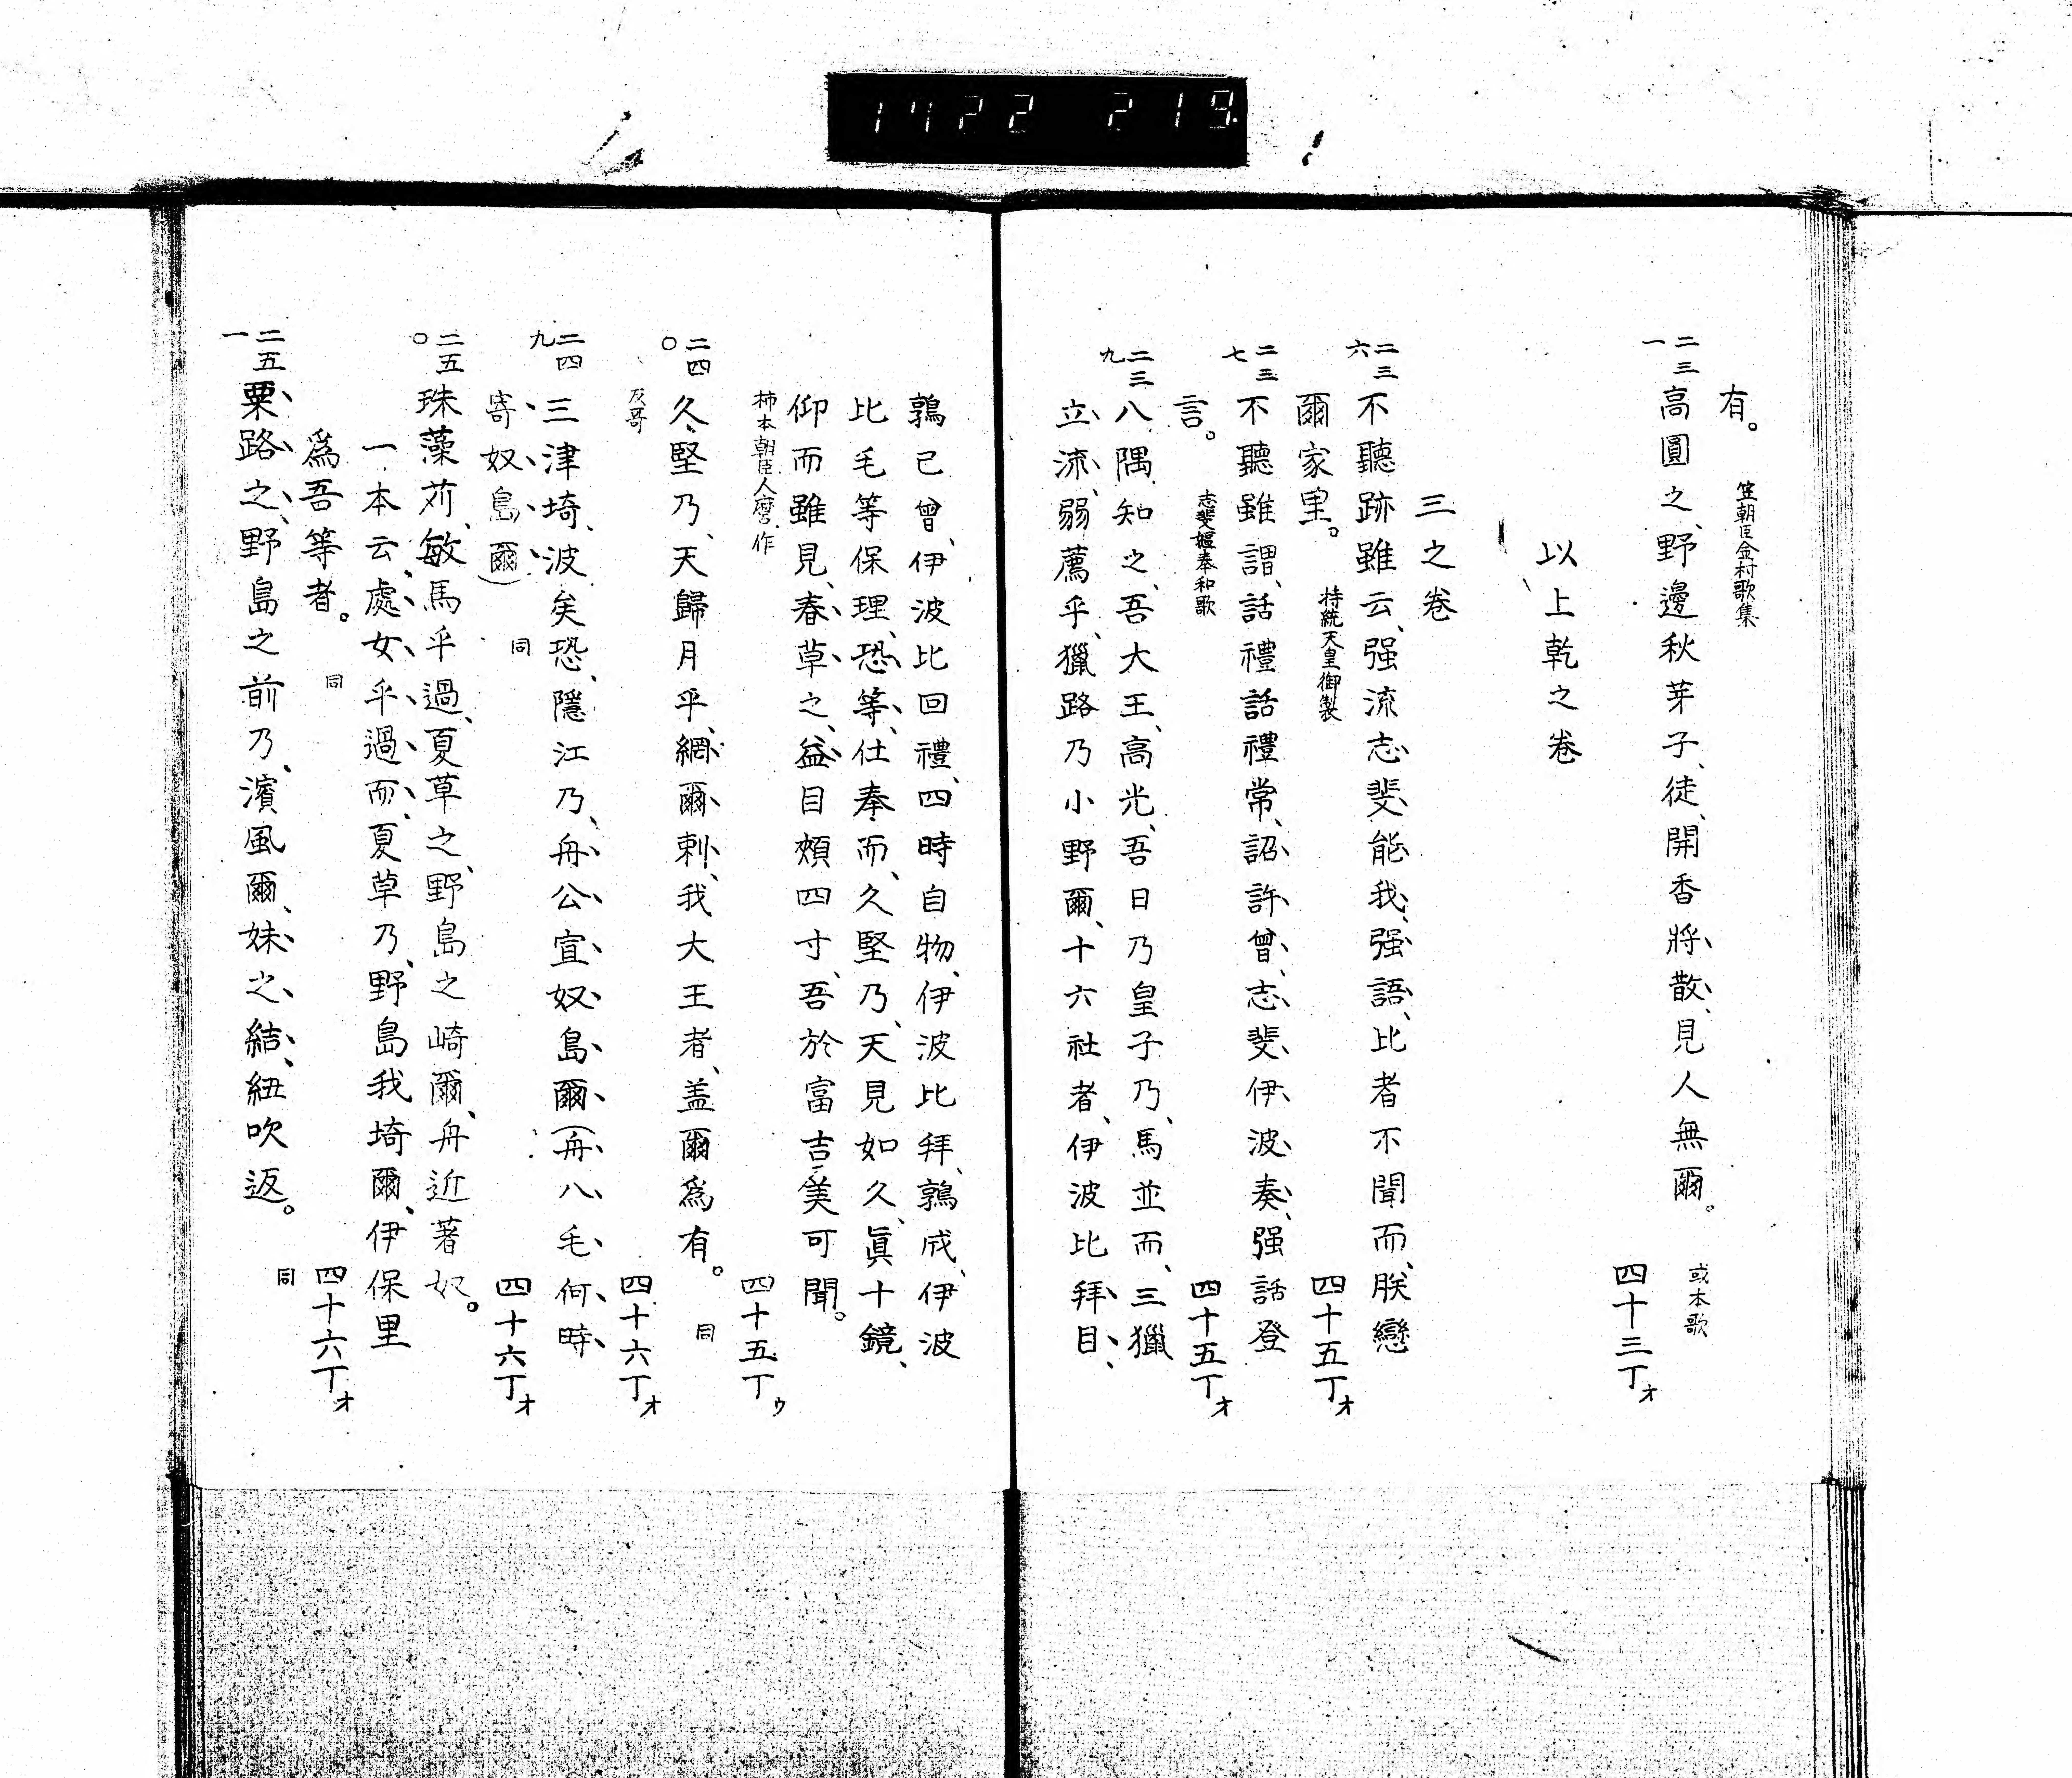 1722 219
有。
笠朝臣金村歌集
二三一
高圓之、野邊秋芽子、徒、開香將散、見人無爾。
或本歌
四十三丁オ
以上乾之巻
三之巻
二三六
不聽跡雖云、强流志斐能我、强語、比者不聞而、朕戀
爾家里。
持統天皇御製
四十五丁オ
二三七
不聽雖謂、話禮話禮常、詔許曾、志斐伊波奏、强話登
言。
志斐嫗奉和歌
四十五丁オ
二三九
八隅知之、吾大王、高光、吾日乃皇子乃、馬並而、三獵
立流、弱薦乎、獵路乃小野爾、十六社者、伊波比拜目、
鶉己曾、伊波比回禮、四時自物、伊波比拜、鶉成、伊波
比毛等保理、恐等、仕奉而、久堅乃、天見如久、眞十鏡、
仰而雖見、春草之、益目頰四寸、吾於富吉美可聞。
柿本朝臣人麿作
四十五丁ウ
二四〇
久堅乃、天歸月乎、網爾刺、我大王者、盖爾爲有。
反哥
同
四十六丁オ
二四九
三津埼、波矣恐、隱江乃、舟公宣奴島爾(舟八毛何時
寄奴島爾)
同
四十六丁オ
二五〇
珠藻苅、敏馬乎過、夏草之、野島之崎爾、舟近著奴。
一本云、處女乎過而、夏草乃、野島我埼爾、伊保里
爲吾等者。
同
四十六丁オ
二五一
粟路之、野島之前乃、濱風爾、妹之結、紐吹返。
同